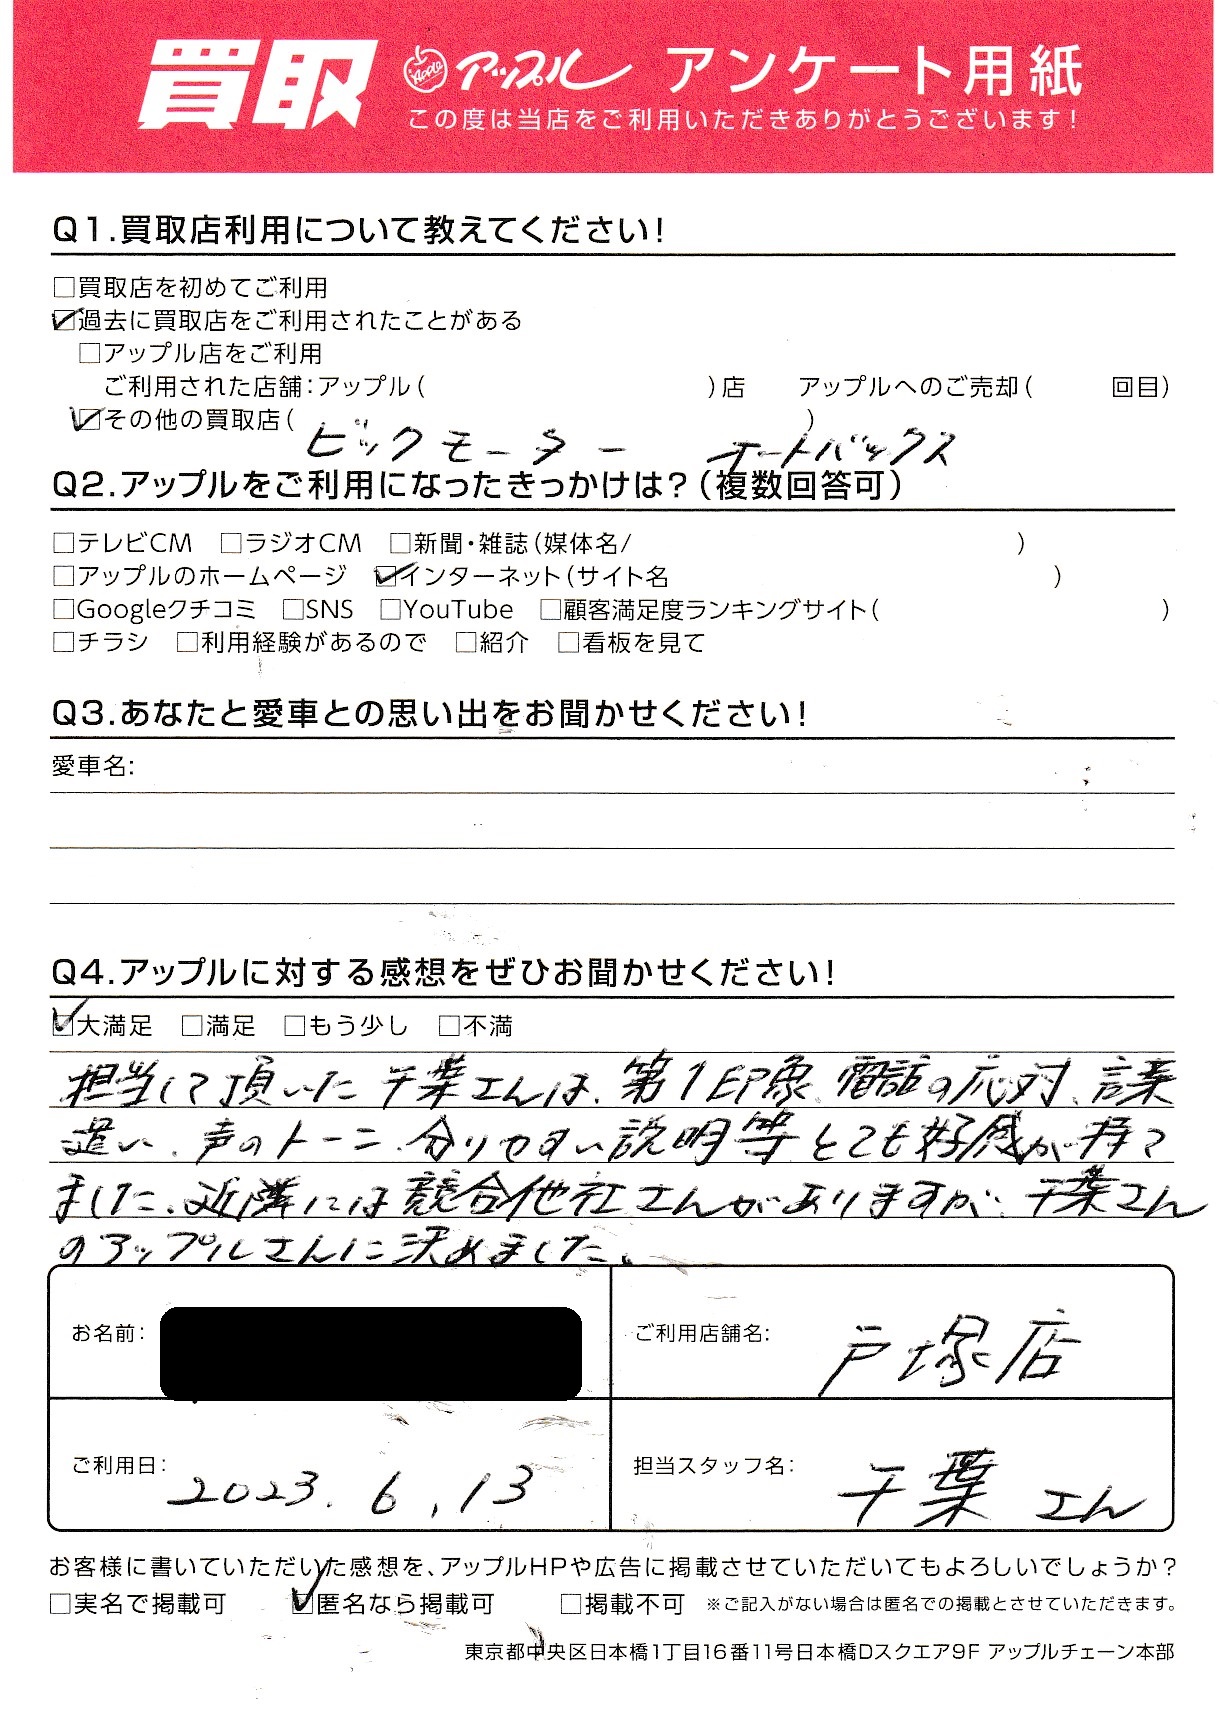 買取 Apple アップル アンケート用紙
この度は当店をご利用いただきありがとうございます!
Q1.買取店利用について教えてください!
□買取店を初めてご利用
☑過去に買取店をご利用されたことがある
□アップル店をご利用
ご利用された店舗:アップル( )店 アップルへのご売却( 回目)
☑その他の買取店( )
ビックモーター オートバックス
Q2.アップルをご利用になったきっかけは?(複数回答可)
□テレビCM □ラジオCM □新聞・雑誌(媒体名/ )
□アップルのホームページ ☑インターネット(サイト名 )
□Googleクチコミ □SNS □YouTube □顧客満足度ランキングサイト( )
□チラシ □利用経験があるので □紹介 □看板を見て
Q3.あなたと愛車との思い出をお聞かせください!
愛車名:
Q4.アップルに対する感想をぜひお聞かせください!
☑大満足 □満足 □もう少し □不満
担当して頂いた千葉さんは、第1印象、電話の応対、言葉
遣い、声のトーン、分りやすい説明等とても好感が持て
ました、近隣には競合他社さんがありますが、千葉さん
のアップルさんに決めました。
お名前:
ご利用店舗名: 戸塚店
ご利用日: 2023.6.13
担当スタッフ名: 千葉さん
お客様に書いていただいた感想を、アップルHPや広告に掲載させていただいてもよろしいでしょうか?
□実名で掲載可 ☑匿名なら掲載可 □掲載不可 ※ご記入がない場合は匿名での掲載とさせていただきます。
東京都中央区日本橋1丁目16番11号日本橋Dスクエア9F アップルチェーン本部